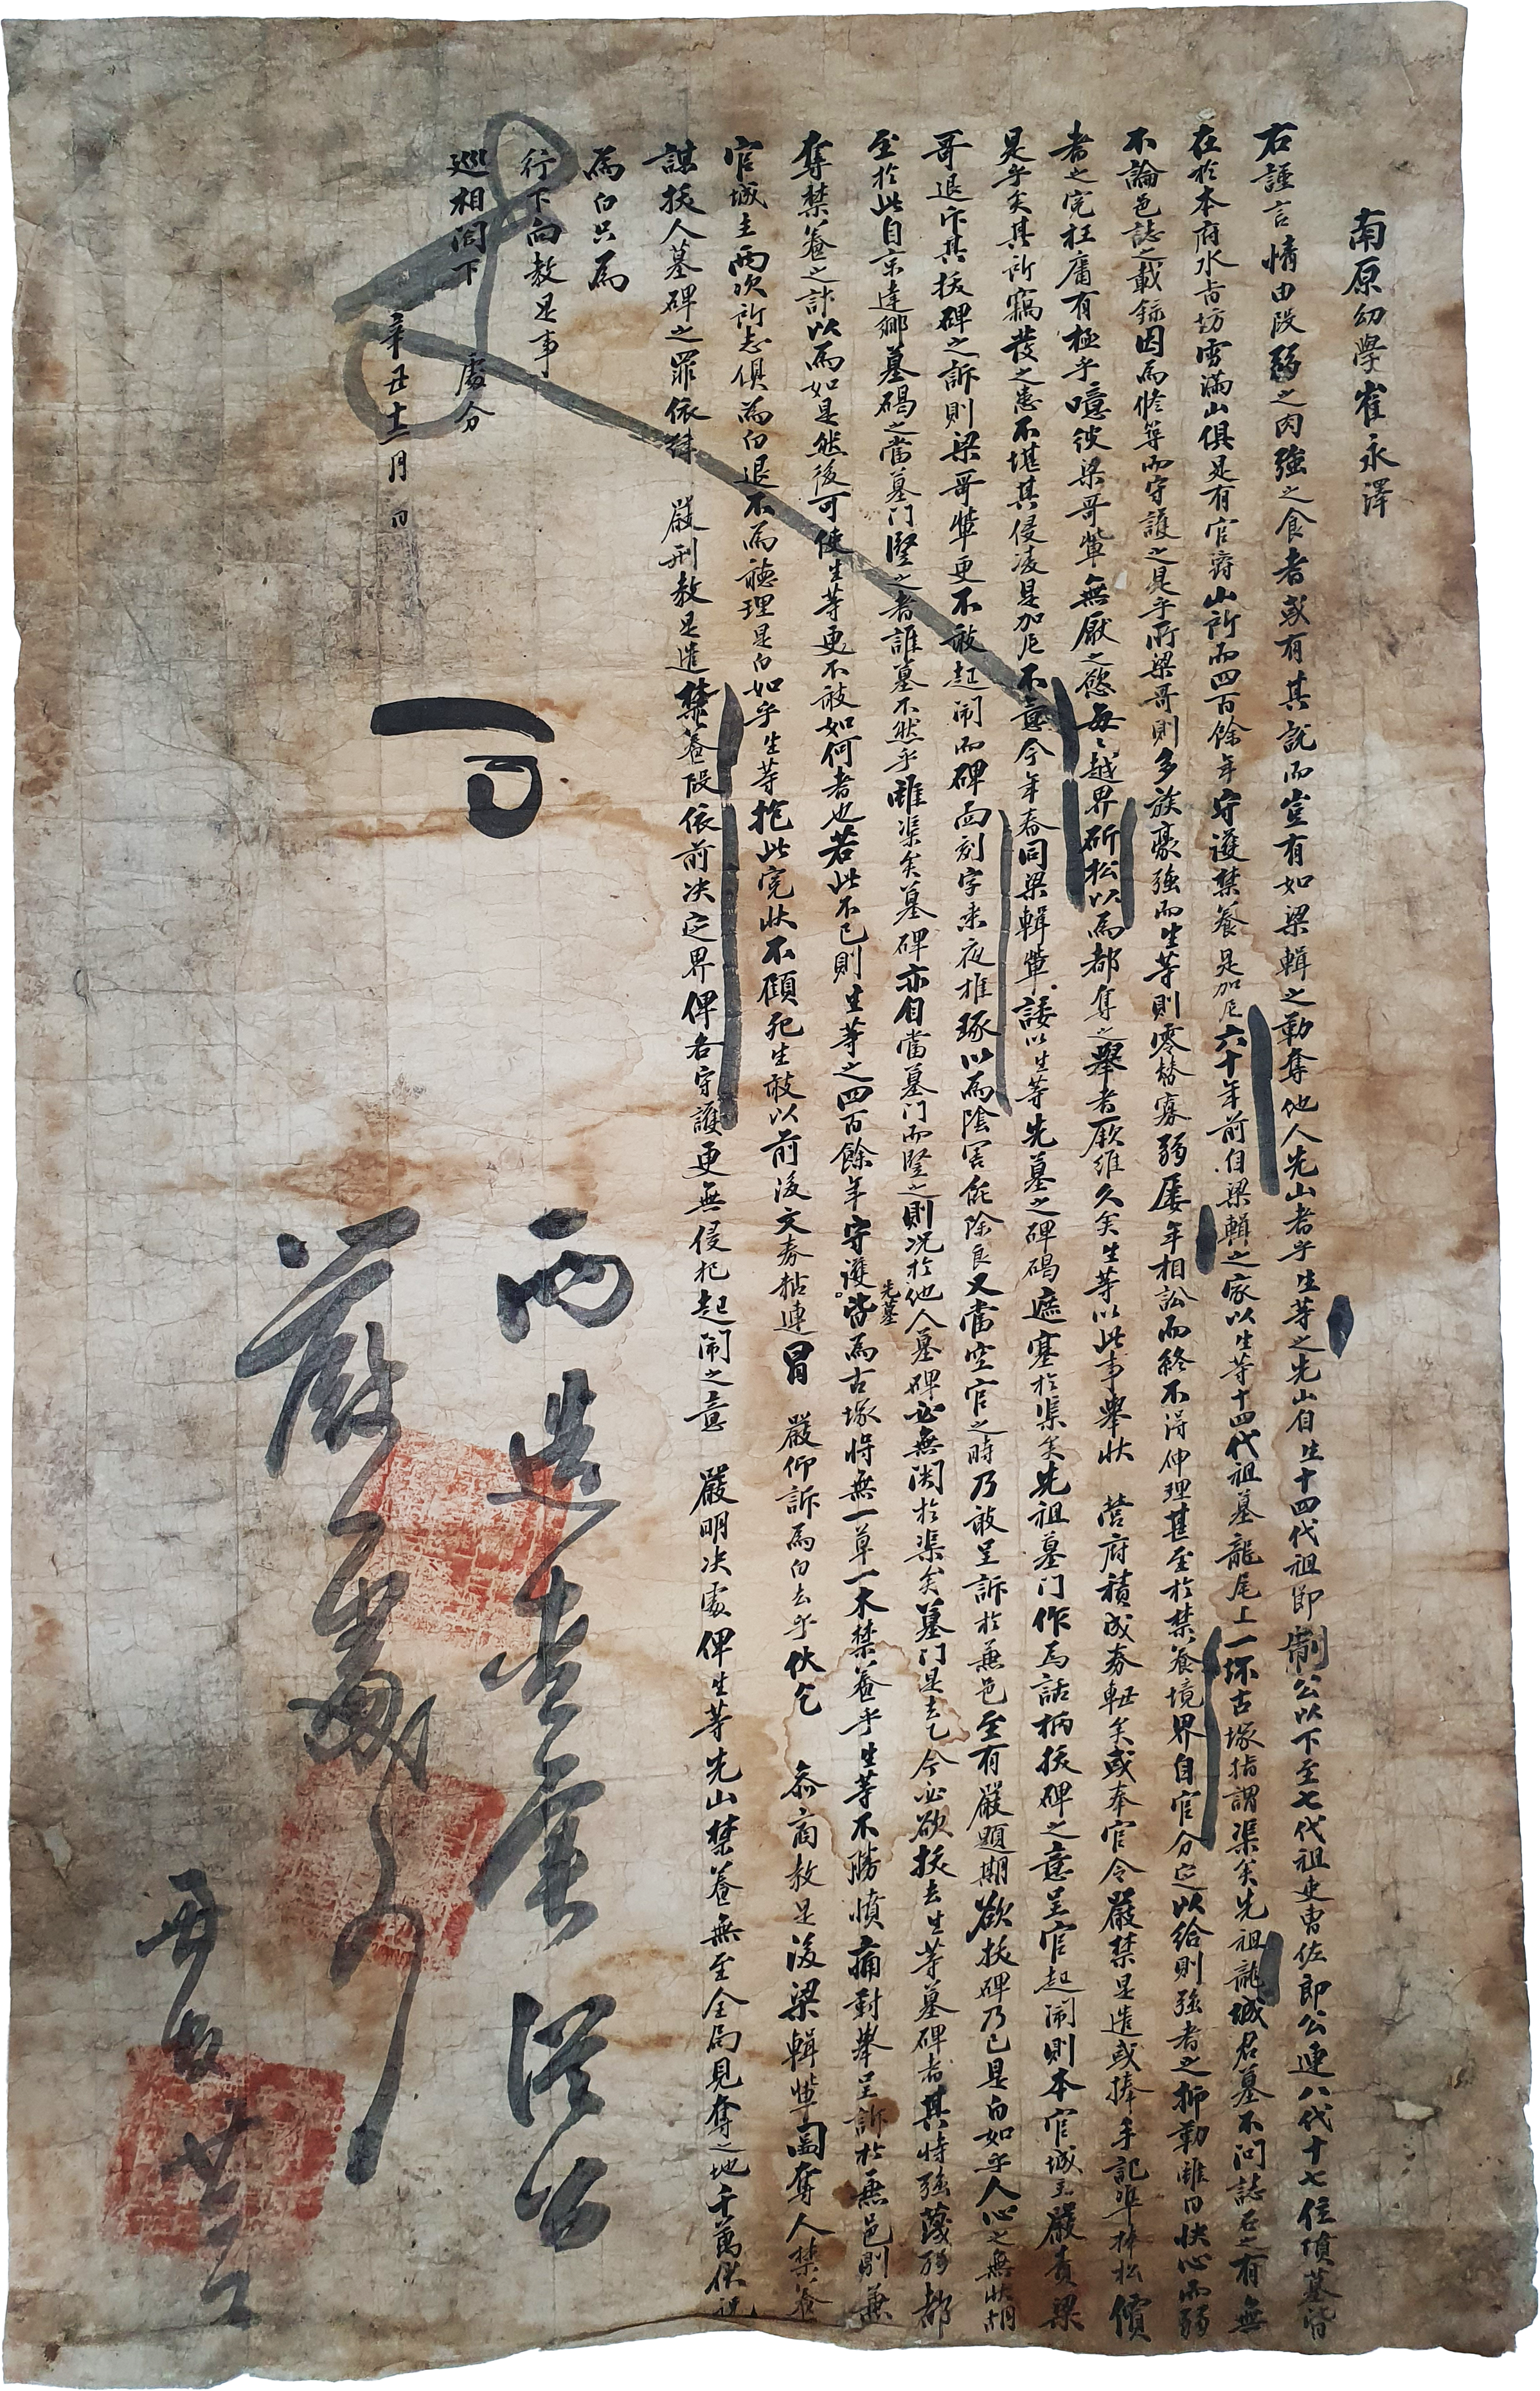 南原幼學崔永澤
右謹言情由段弱之肉強之食者或有其說而豈有如梁輯之勒奪他人先山者乎生等之先山自生十四代祖即制公以下至七代祖吏曹佐郎公連八代十七位墳墓皆
在於本府水旨坊雪滿山俱是有官爵山所而四百餘年守護禁養是加尼六十年前自梁輯之家以生等十四代祖墓龍尾上一坏古塚指謂渠矣先祖龍城君墓不問誌石之有無
不論邑誌之載錄因爲修筭而守護之是乎所梁哥則多族豪強而生等則零替寡弱屢年相訟而終不得伸理甚至於禁養境界自官分定以給則強者之抑勒雖曰快心而弱
者之寃枉庸有極乎噫彼梁哥輩無厭之慾每每越界斫松以爲都奪之擧者厥維久矣生等以此事擧狀 營府積成券軸矣或奉官令嚴禁是遣或捧手記準捧松價
是乎矣其所竊發之患不堪其侵凌是加尼不意今年春同梁輯輩諉以生等先墓之碑碣遮塞於渠矣先祖墓門作爲話柄拔碑之意呈官起鬧則本官城主嚴責梁
哥退斥其拔碑之訴則梁哥輩更不敢起鬧而碑面刻字乘夜推琢以爲陰害能除良又當空官之時乃敢呈訴於兼邑至有嚴題期欲拔碑乃已是白如乎人心之無狀胡
至於此自京達鄕墓碣之當墓門竪之者誰墓不然乎雖渠矣墓碑亦自當墓門而竪之則況於他人先墓墓碑必無関於渠矣墓門是去乙今必欲拔去生等墓碑者其恃強蔑弱都
奪禁養之計以爲如是然後可使生等更不敢如何者也若此不已則生等之四百餘年守護皆爲古塚將無一草一木禁養乎生等不勝憤痛對擧呈訴於兼邑則兼
官城主兩次所志俱爲白退不爲聽理是白如乎生等抱此寃狀不顧死生敢以前後文券粘連冒 嚴仰訴爲白去乎伏乞 叅商教是後梁輯輩圖奪人禁養
謀拔人墓碑之罪依律 嚴刑教是遣禁養段依前决定界俾各守護更無侵犯起鬧之意 嚴明决處俾生等先山禁養無至全局見奪之地千萬伏祝
爲白只爲
行下向教是事
巡相閤下 處分
辛丑十二月 日